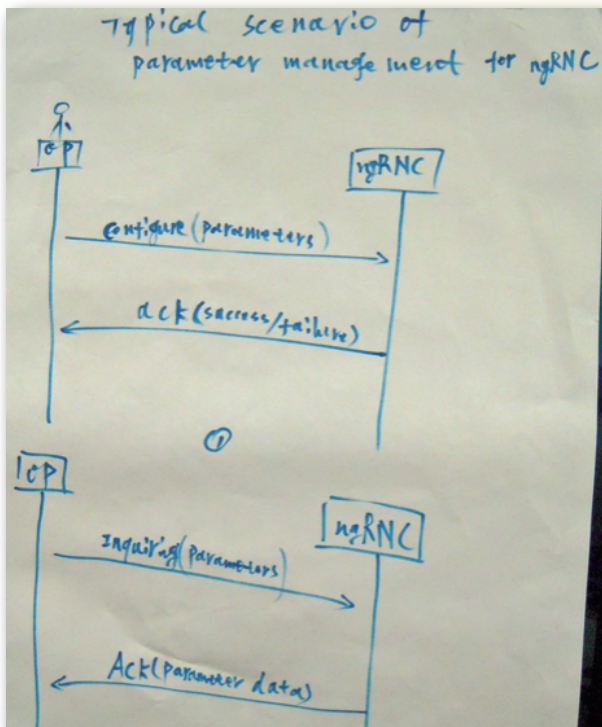 Typical scenario of
parameter management for ngRNC
CP
ngRNC
configure(parameters)
ack(success/failure)
①
CP
ngRNC
Inquiring(parameters)
Ack(parameter data)